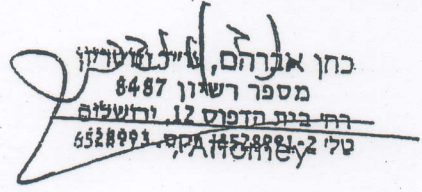 כהן אברהם, עו"ד ונוטריון
מספר רשיון 8487
רח' בית הדפוס 12, ירושלים
טל' פקס.
, Attorney